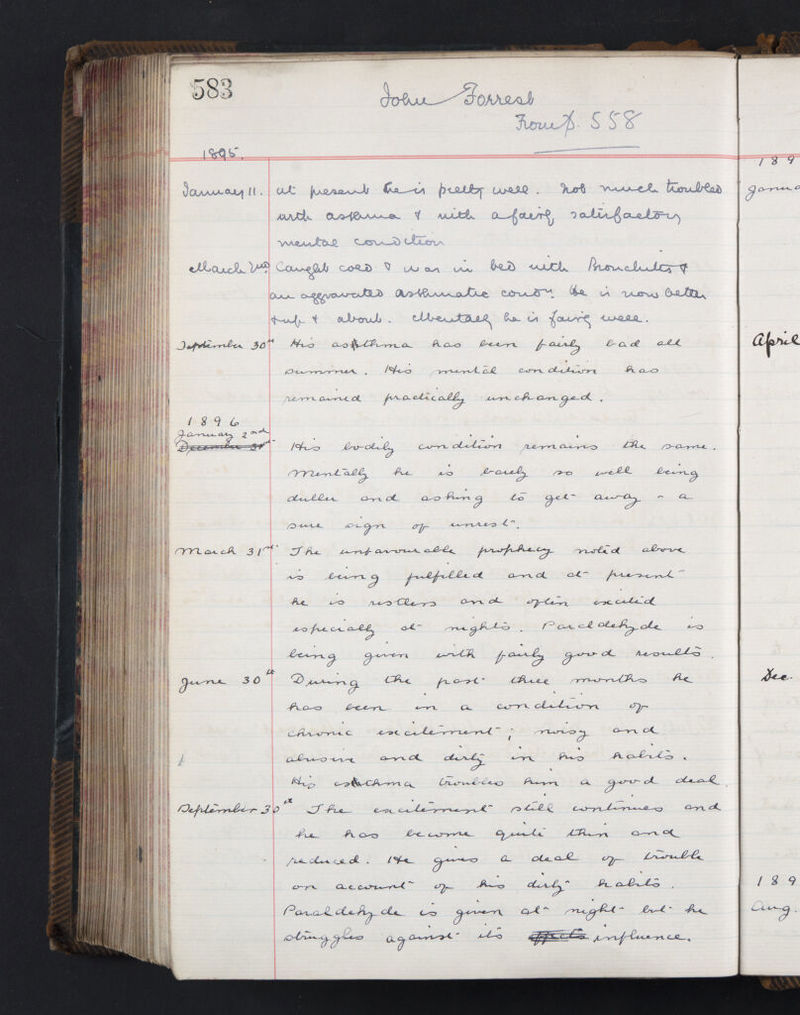 583
John Forrest
From p. 558
1895.
January 11. at present he is pretty well. not much troubled
with asthma & with a fairly satisfactory
mental condition
March 2nd Caught cold & was in bed with Bronchitis &
an aggravated asthmatic condn. He is now better
& up & about. Mentally he is fairly well.
September 30th His asthma has been fairly bad all
summer. His mental condition has
remained practically unchanged.
1896
January 2nd
December 31st His bodily condition remains the same.
Mentally he is barely so well being
duller and asking to get away - a
sure sign of unrest.
March 31st The unfavourable prophecy noted above
is being fulfilled and at present
he is restless and often excited
especially at nights. Paraldehyde is
being given with fairly good results.
June 30th During the past three months he
has been in a condition of
chronic excitement; noisy and
abusive and dirty in his habits.
His asthma troubles him a good deal.
September 30th The excitement still continues and
he has become quite thin and
reduced. He gives a deal of trouble
on account of his dirty habits.
Paraldehyde is given at night but he
struggles against its effects influence.
189
Janua
April
Dec.
189
Aug.